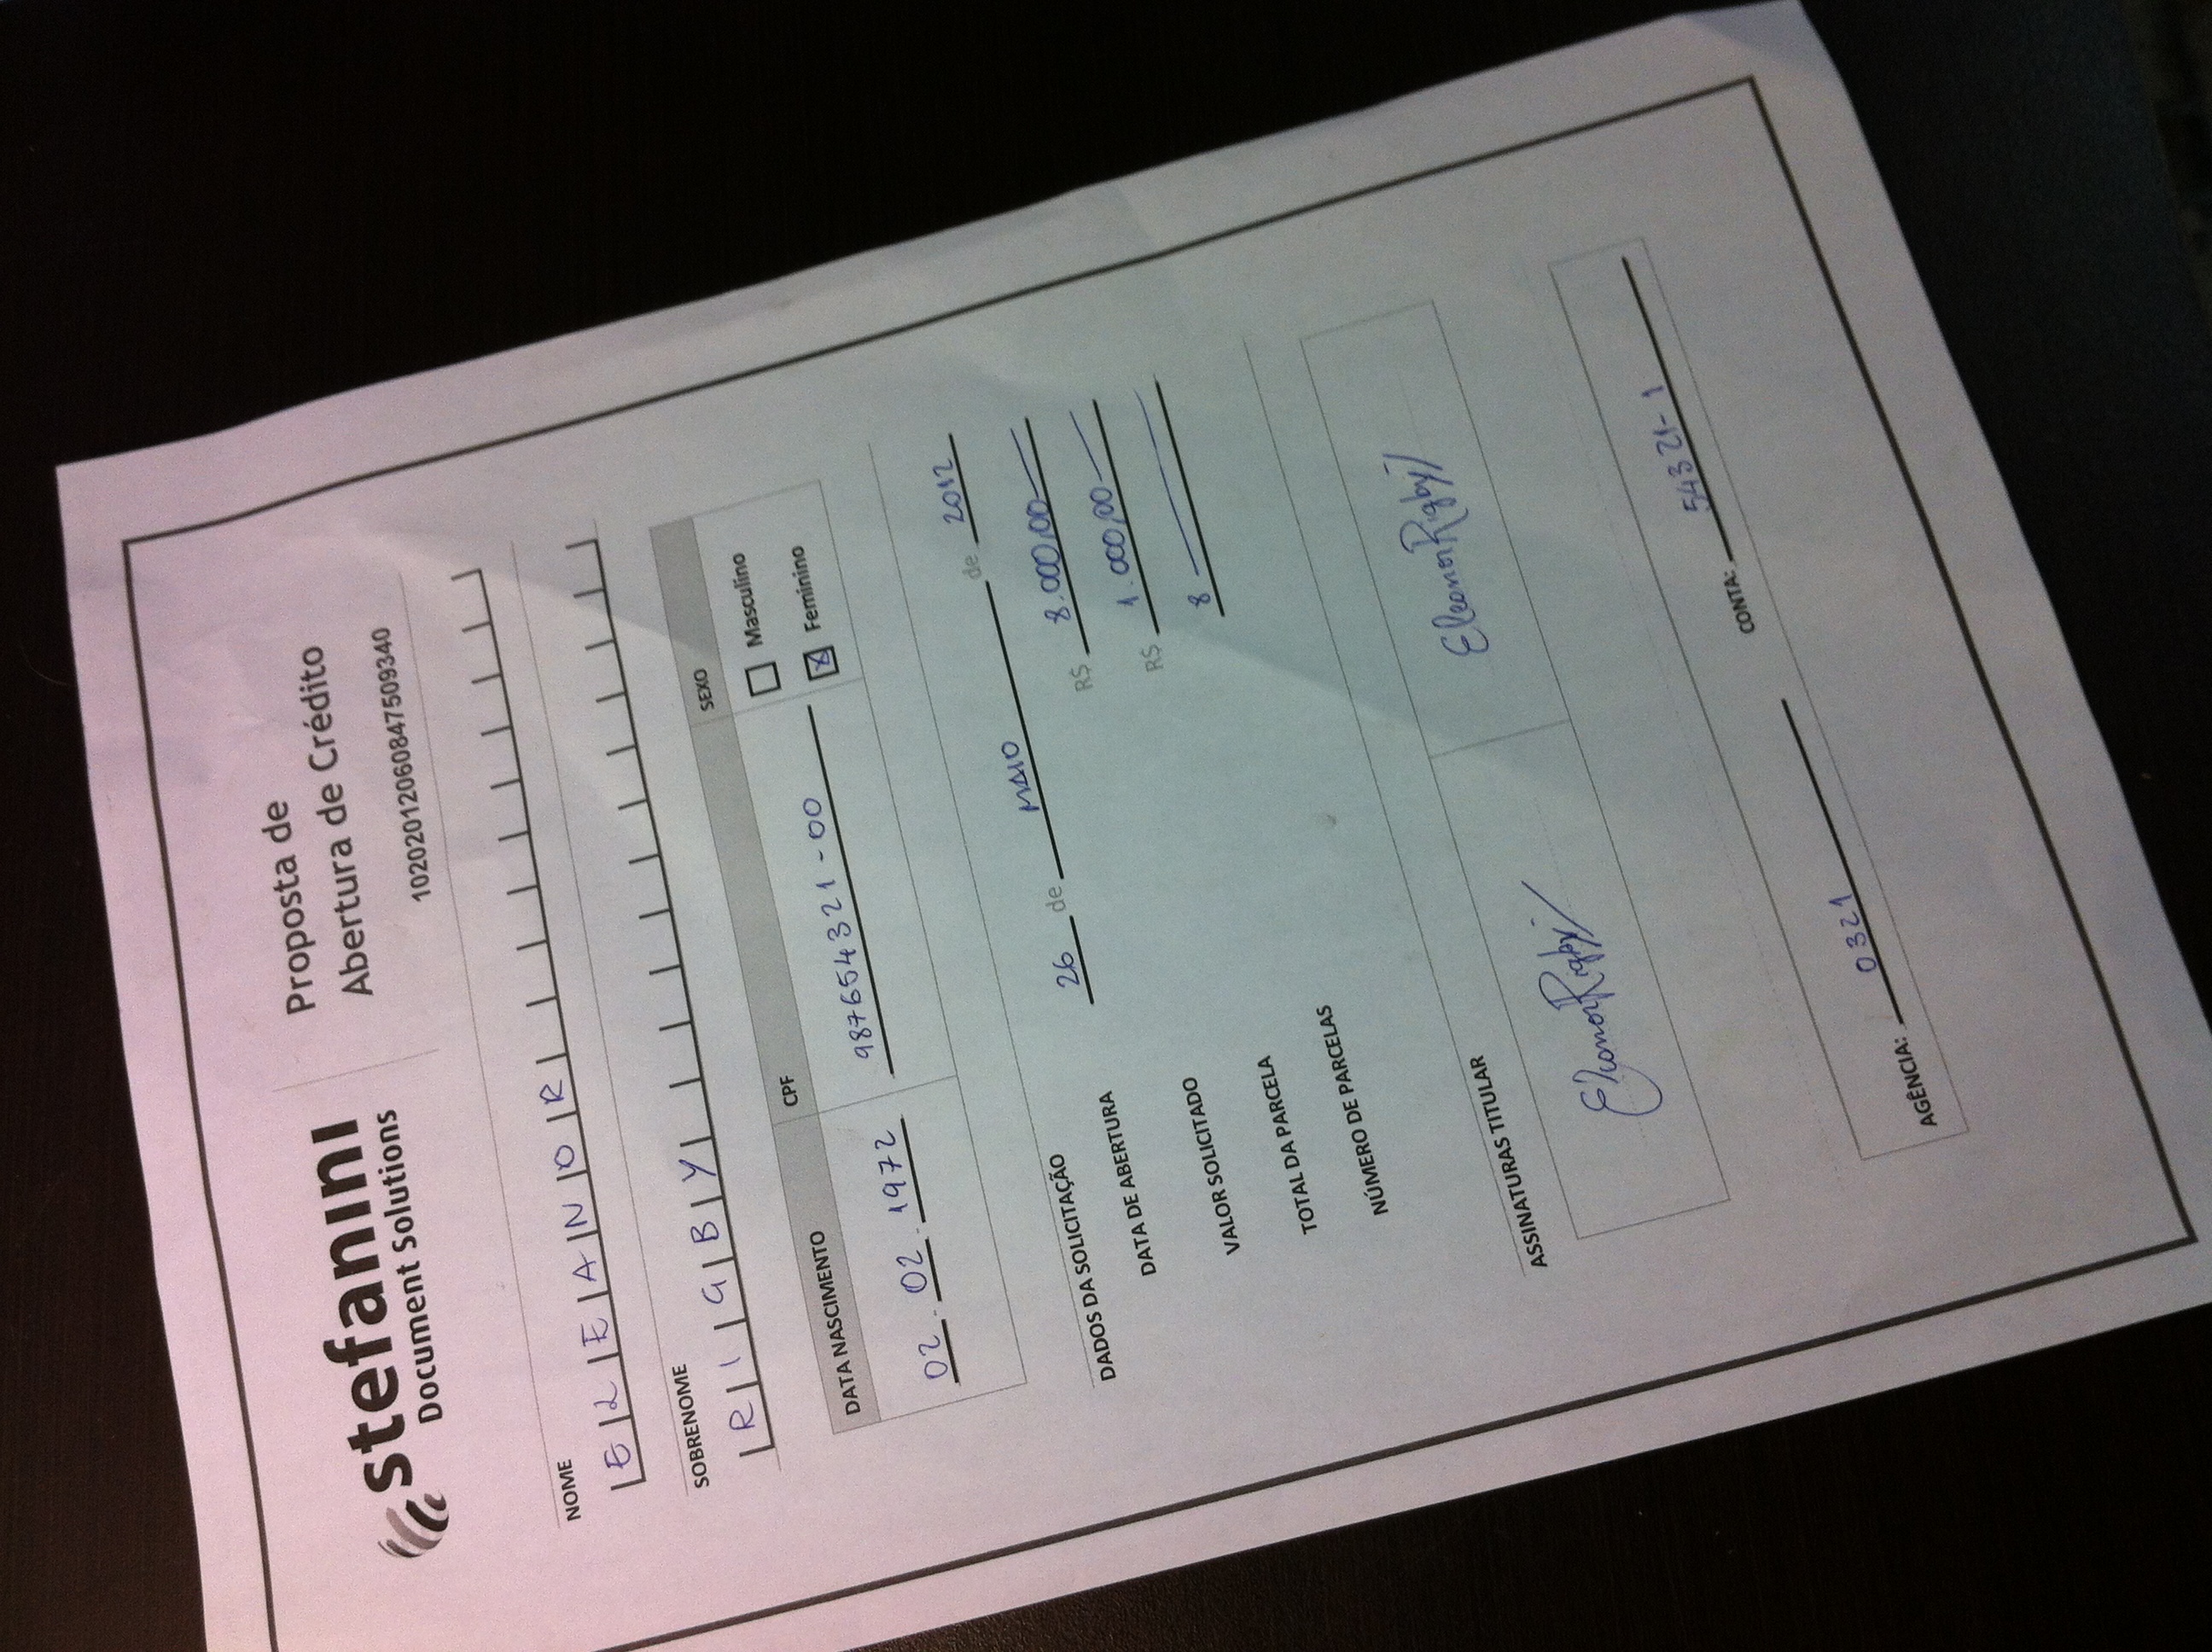 stefanini
Document Solutions
Proposta de
Abertura de Crédito
10202012060847509340
NOME
ELEANOR
SOBRENOME
RIGBY
DATA NASCIMENTO CPF SEXO
02.02.1972 987654321-00 Masculino
Feminino
DADOS DA SOLICITAÇÃO
DATA DE ABERTURA 26 de MAIO de 2012
VALOR SOLICITADO R$ 8.000,00
TOTAL DA PARCELA R$ 1.000,00
NÚMERO DE PARCELAS 8
ASSINATURAS TITULAR
Eleanor Rigby Eleanor Rigby
AGÊNCIA: 0321 CONTA: 54321-1